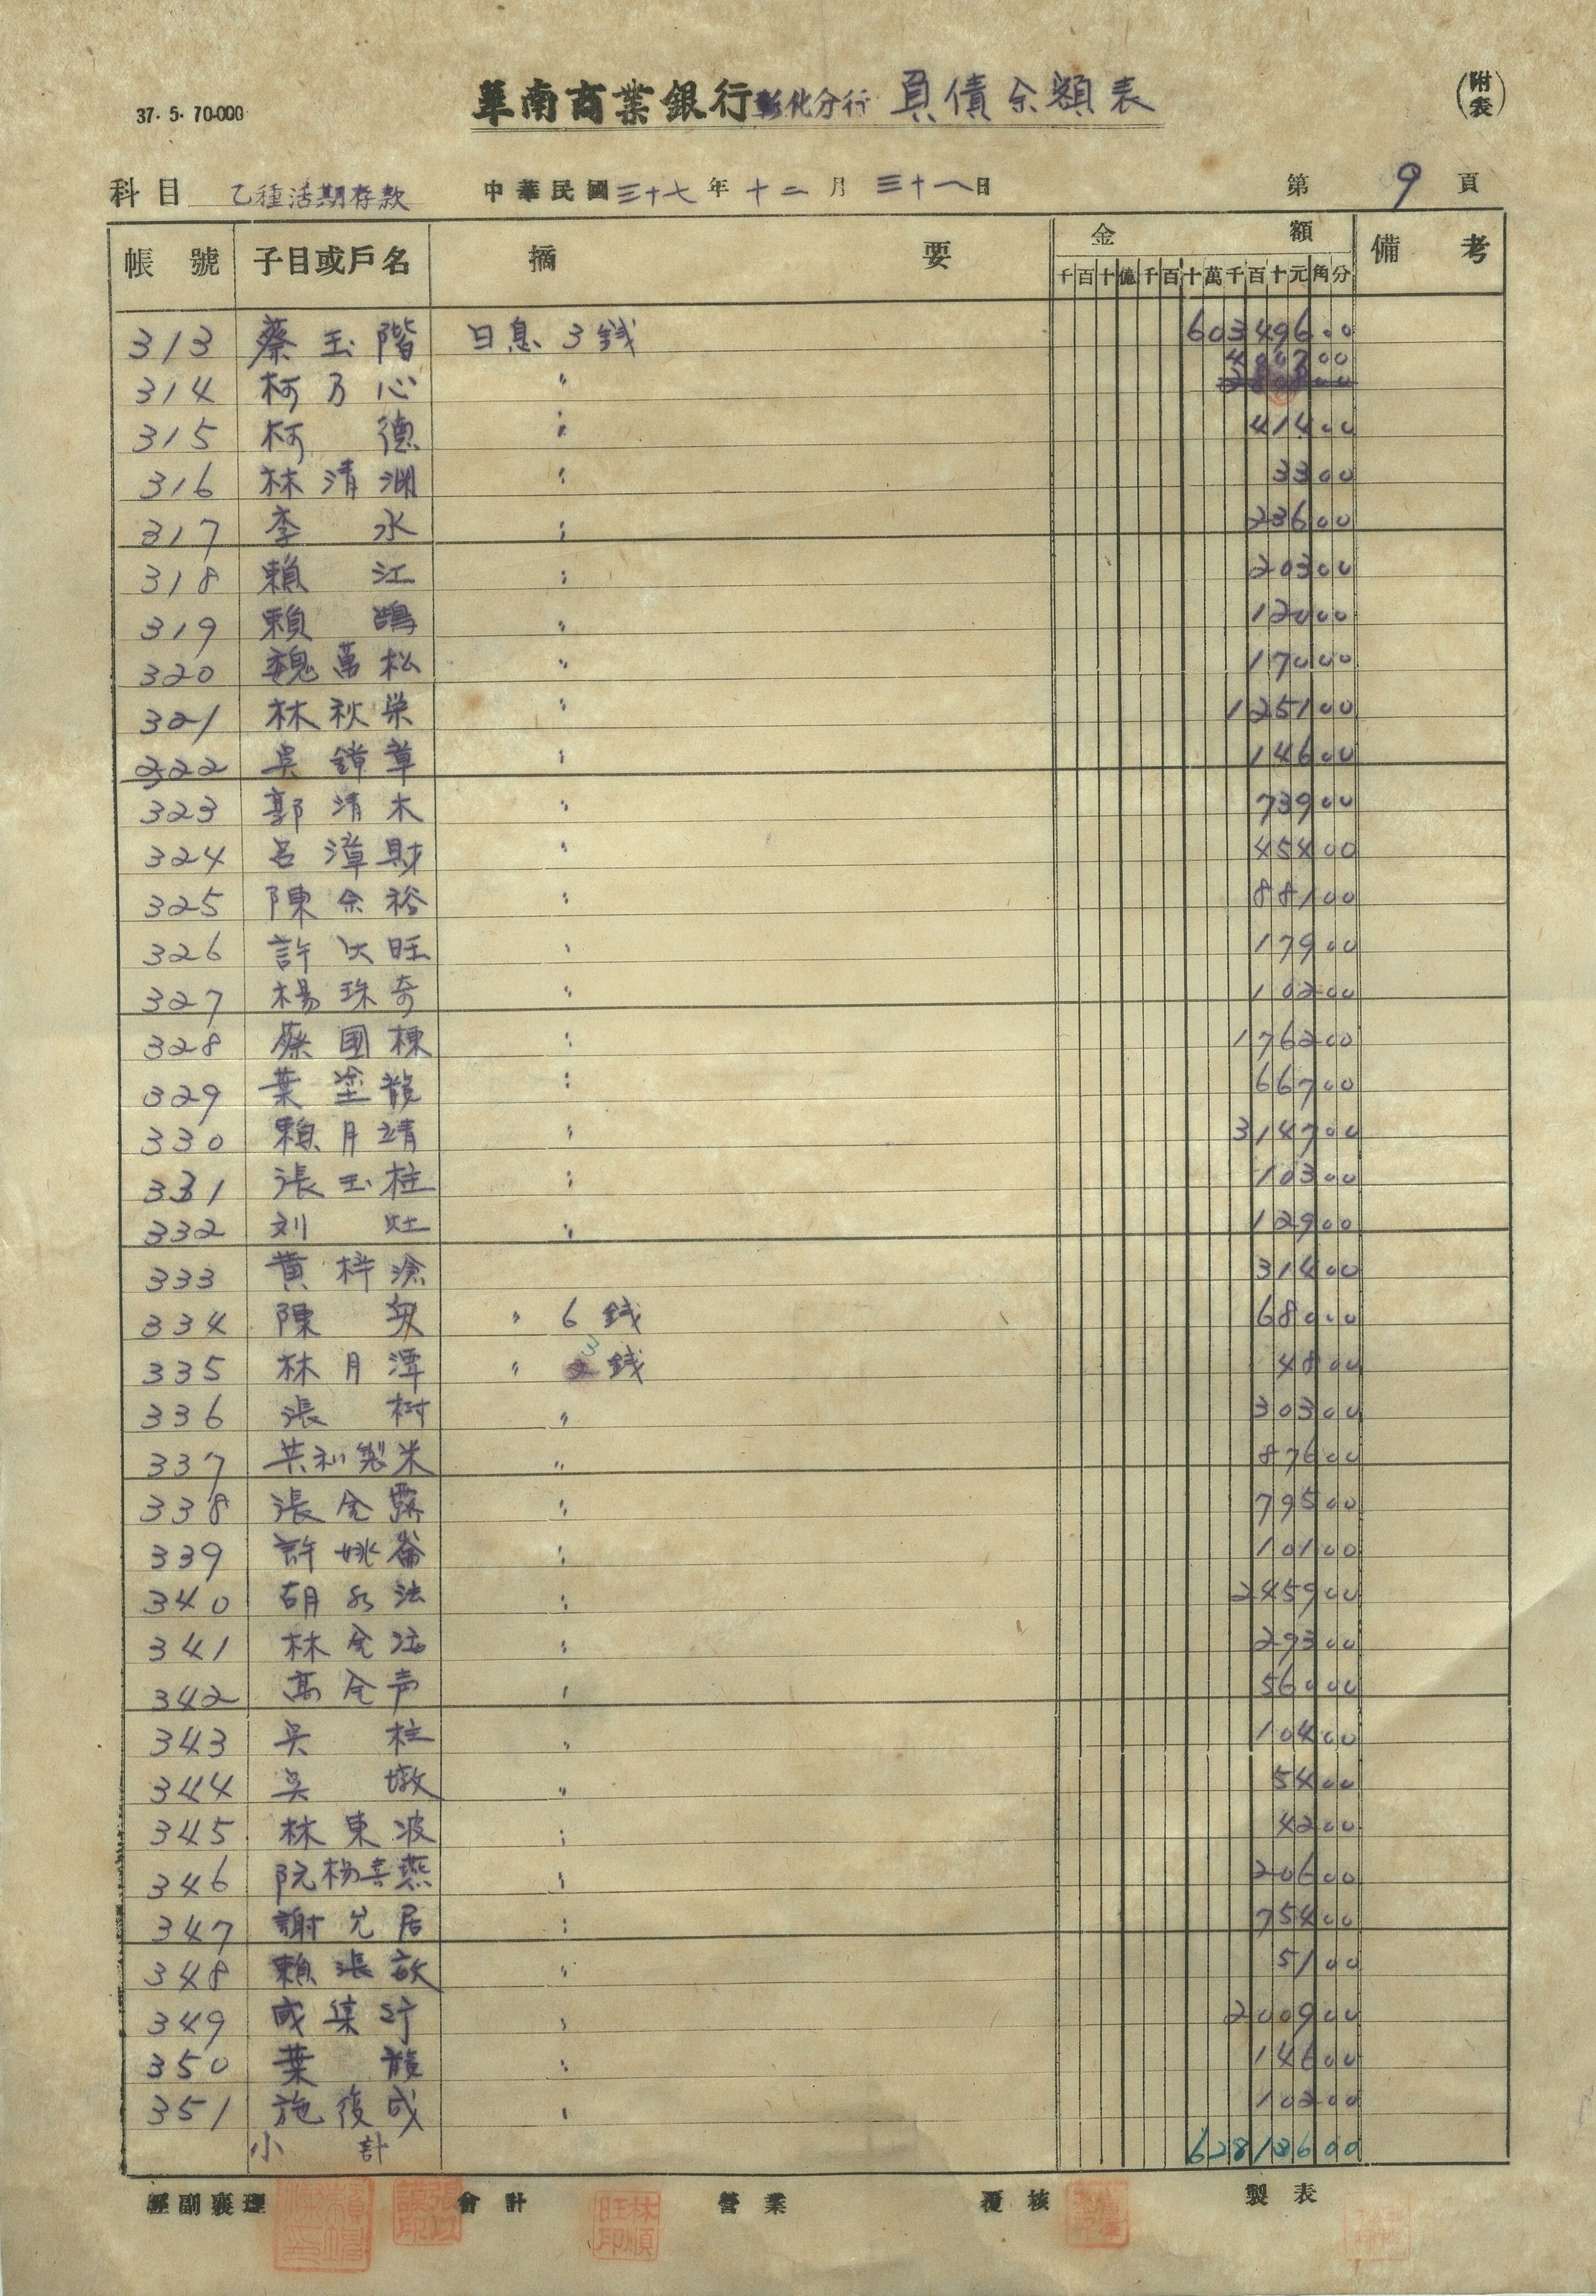 37. 5. 70.000
華南商業銀行彰化分行 負債余額表
(附表)
科目 乙種活期存款 中華民國三十七年十二月三十一日 第9頁
帳號 子目或戶名 摘要 金額 備考
千百十億千百十萬千百十元角分
313 蔡玉階 日息3錢 603496.00
4007.00
314 柯乃心 〃
315 柯德 〃 414.00
316 林清淵 〃 33.00
317 李水 〃 236.00
318 賴江 〃 203.00
319 賴鵠 〃 120.00
320 魏萬松 〃 170.00
321 林秋栄 〃 1251.00
322 吳鐘章 〃 146.00
323 郭清木 〃 739.00
324 呂漳財 〃 454.00
325 陳余裕 〃 881.00
326 許以旺 〃 179.00
327 楊珠奇 〃 102.00
328 蔡國棟 〃 1762.00
329 葉塗龍 〃 667.00
330 賴月靖 〃 3147.00
331 張玉柱 〃 103.00
332 刘灶 〃 129.00
333 黃梓滄 314.00
334 陳 〃 6錢 680.00
335 林月潭 〃 3錢 48.00
336 張樹 〃 303.00
337 共和製米 〃 876.00
338 張金露 〃 795.00
339 許姚崙 〃 101.00
340 胡水法 〃 2459.00
341 林金 〃 293.00
342 高金声 〃 560.00
343 吳柱 〃 104.00
344 吳墩 〃 54.00
345 林東波 〃 42.00
346 阮楊喜燕 〃 206.00
347 謝允居 〃 754.00
348 賴張敬 〃 51.00
349 咸集行 〃 2009.00
350 葉龍 〃 146.00
351 施復成 〃 102.00
小計 628136.00
經副襄理 會計 營業 覆核 製表
林順旺印